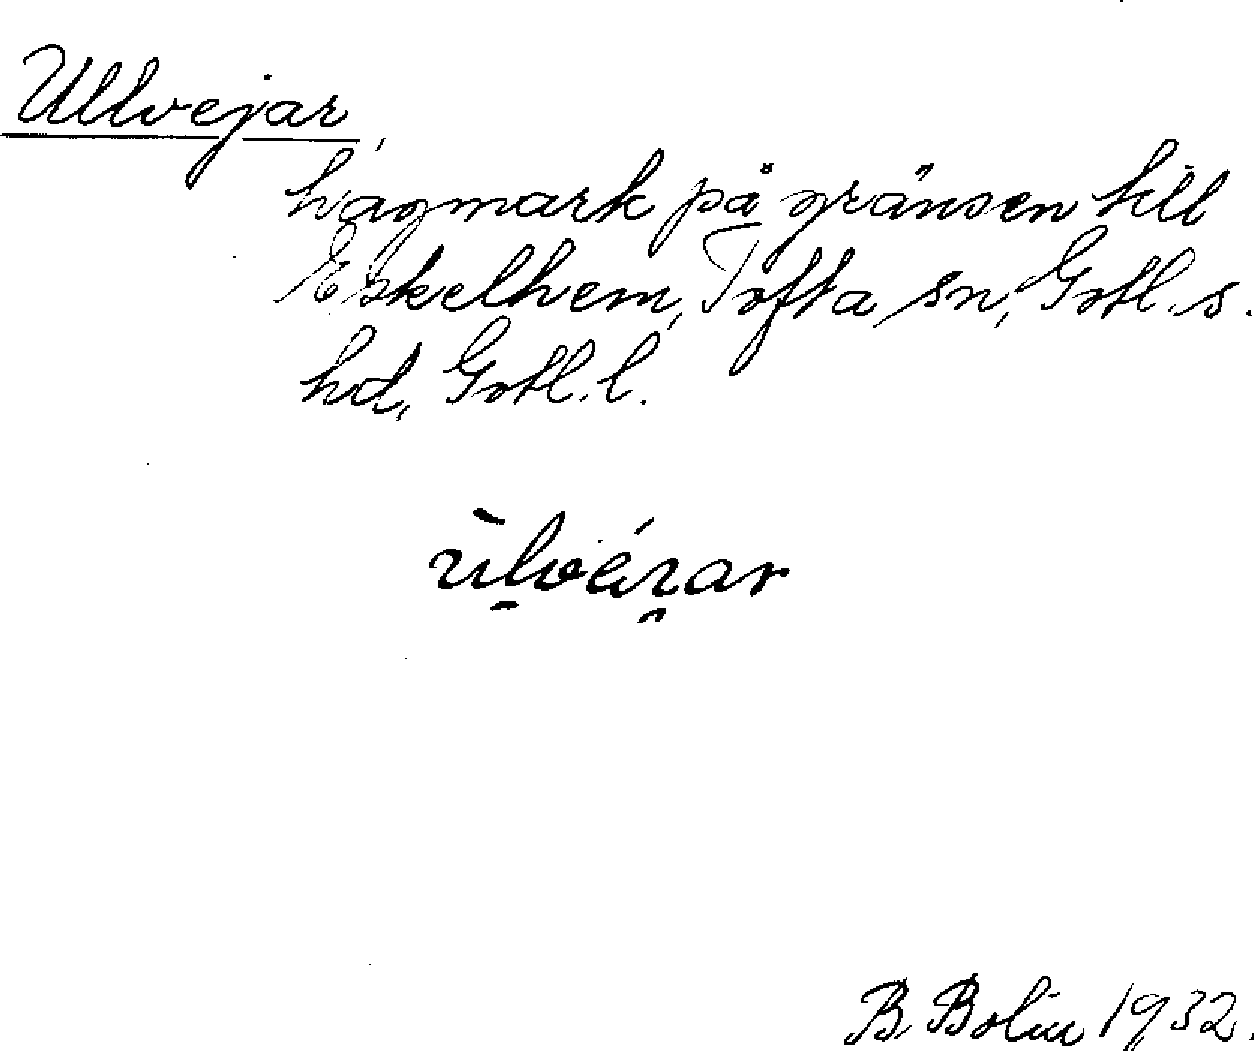 Ullvejar,
hagmark på gränsen till
Eskelhem, Tofta sn, Gotl. s.
hd, Gotl. l.
B. Bolin 1932.